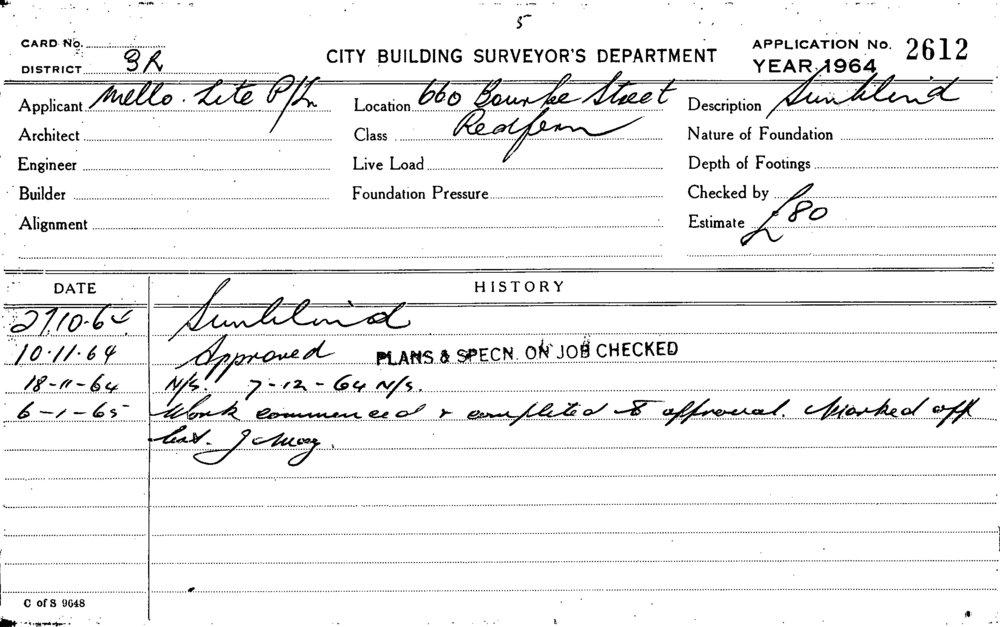 5
CARD No.
DISTRICT 3R
CITY BUILDING SURVEYOR'S DEPARTMENT
APPLICATION No. 2612
YEAR 1964
Applicant Mello. Lite P/L
Location 660 Bourke Street
Description Sunblind
Architect
Class Redfern
Nature of Foundation
Engineer
Live Load
Depth of Footings
Builder
Foundation Pressure
Checked by
Alignment
Estimate £80
DATE
HISTORY
27.10.64 Sunblind
10.11.64 Approved PLANS & SPECN. ON JOB CHECKED
18-11-64 N/s. 7-12-64 N/s.
6-1-65 Work commenced & completed to approval. Marked off
J
C of S 9648